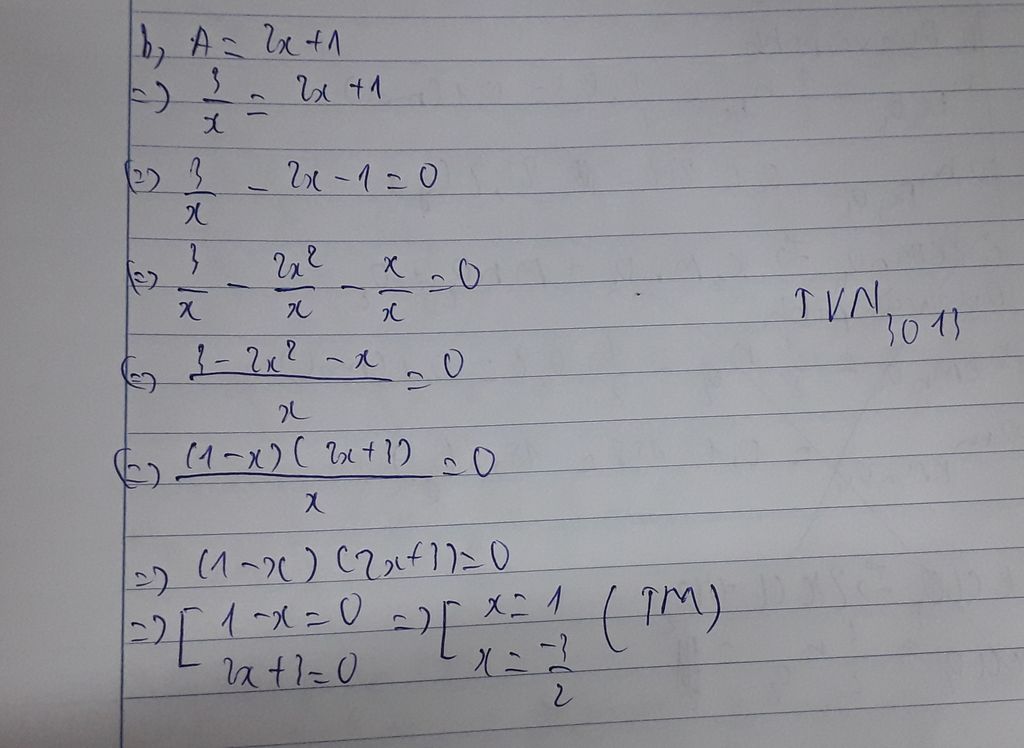 b, A = 2x + 1
=> 3/x = 2x + 1
<=> 3/x - 2x - 1 = 0
<=> 3/x - 2x²/x - x/x = 0
TVN3013
<=> (3 - 2x² - x)/x = 0
<=> (1 - x)(2x + 3)/x = 0
=> (1 - x)(2x + 3) = 0
=> [ 1 - x = 0 => [ x = 1 (TM)
2x + 3 = 0 x = -3/2